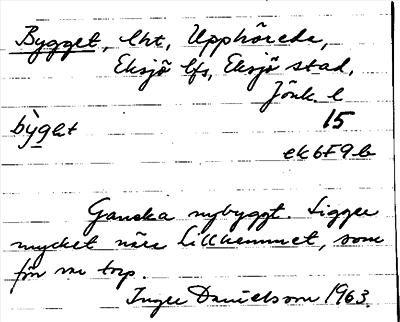 Bygget, lht, Upphöreda,
Eksjö lfs, Eksjö stad,
Jönk. l
15
bỳget
ek6F9b
Ganska nybyggt. Ligger
mycket nära Lillhemmet, som
förr var torp.
Inger Danielsson 1963.